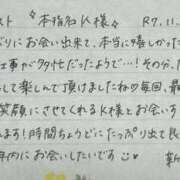 スト 『本指名K様』 R7.11.
ぶりにお会い出来て、本当に嬉しかった
仕事が多忙だったようで…!その分、た
して楽しんで頂けましたね♡毎回、最
笑顔にさせてくれるK様とお会
ます!時間ちょうどにたっぷりと
年内にお会いしたいです